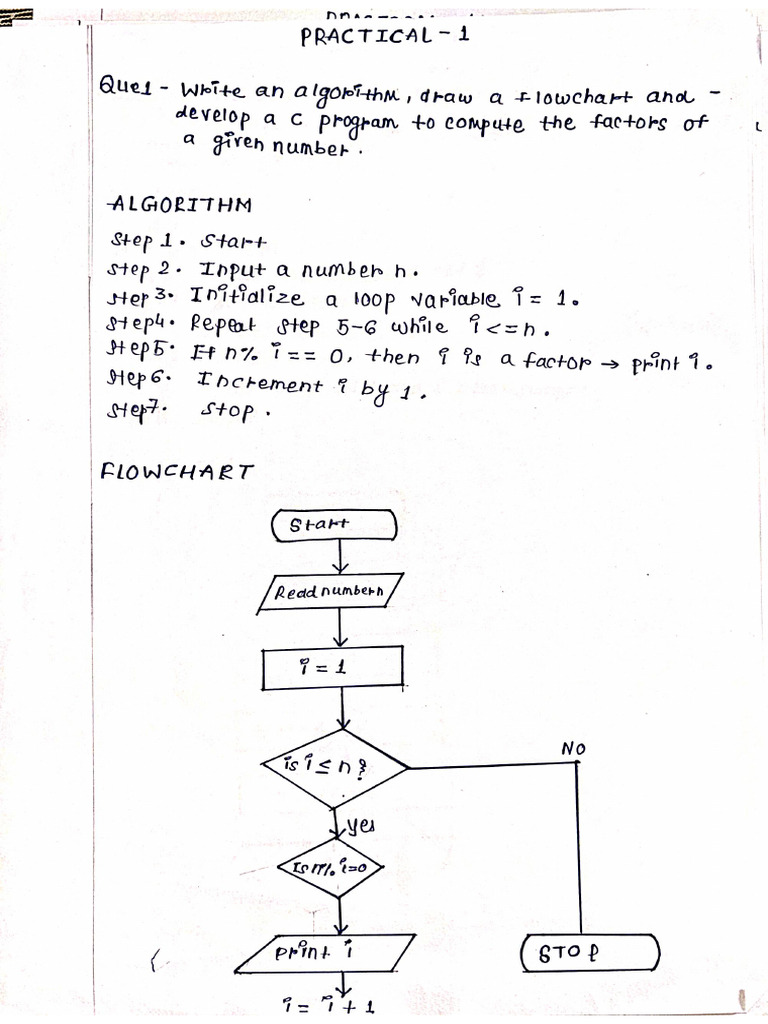 PRACTICAL - 1
Que1 - Write an algorithm, draw a flowchart and -
develop a C program to compute the factors of
a given number.
ALGORITHM
Step 1. Start
Step 2. Input a number n.
Step 3. Initialize a loop variable i = 1.
Step4. Repeat step 5-6 while i <= n.
Step5. If n% i == 0, then i is a factor → print i.
Step 6. Increment i by 1.
Step7. Stop.
FLOWCHART
Start
Read number n
i = 1
is i ≤ n?
NO
Yes
Is n% i=0
print i
STOP
i = i + 1